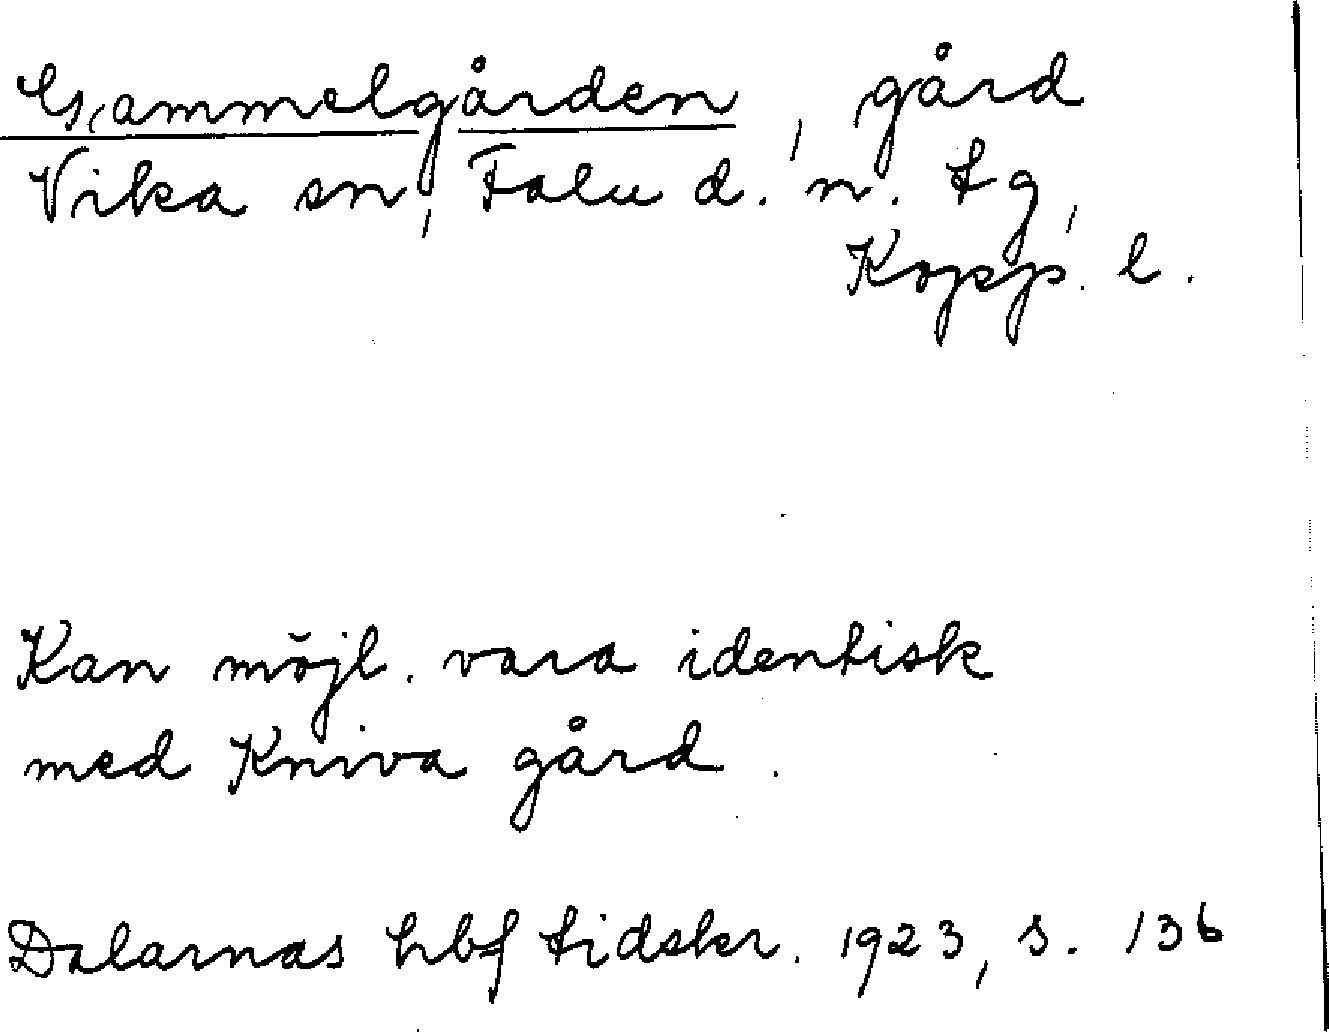 Gammelgården, gård
Vika sn, Falu d. n. tg,
Kopp. l.
Kan möjl. vara identisk
med Kniva gård.
Dalarnas hbf tidskr. 1923, s. 136